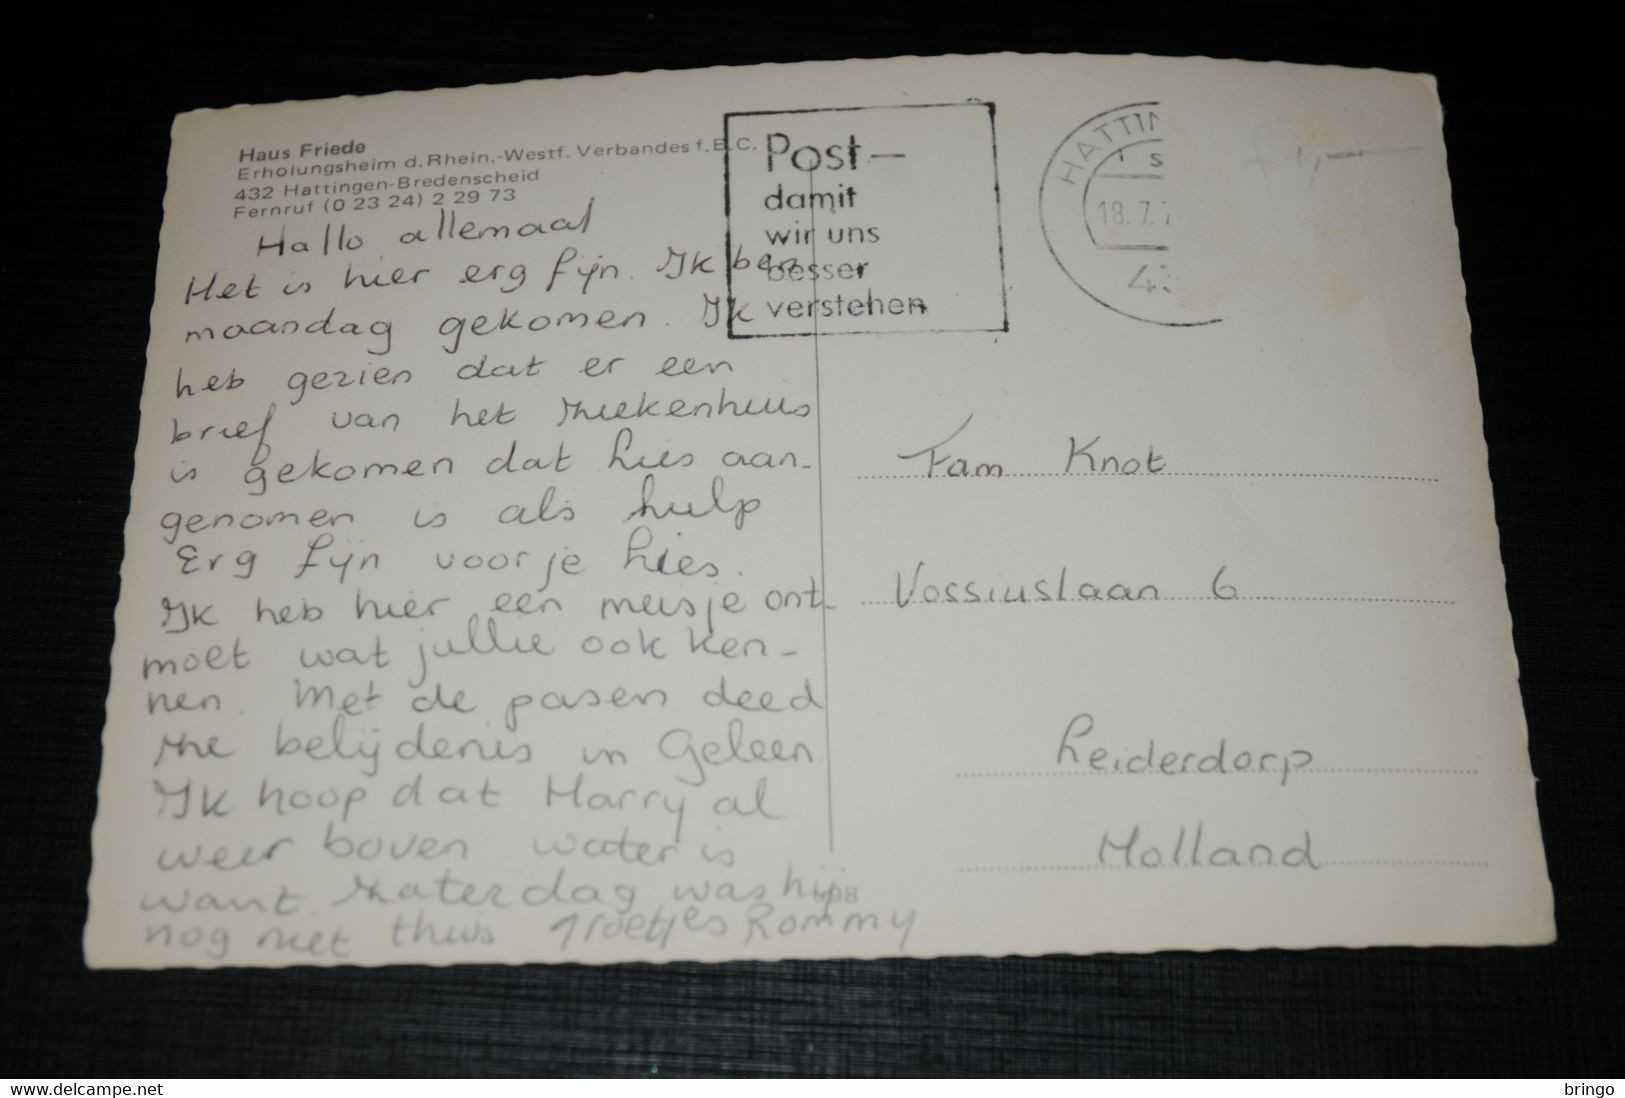 Haus Friede
Erholungsheim d. Rhein.-Westf. Verbandes f. E.C.
432 Hattingen-Bredenscheid
Fernruf (0 23 24) 2 29 73
Hallo allemaal
Het is hier erg fijn. Ik ben
maandag gekomen. Ik
heb gezien dat er een
brief van het ziekenhuis
is gekomen dat Lies aan-
genomen is als hulp
Erg fijn voor je Lies.
Ik heb hier een meisje ont-
moet wat jullie ook ken-
nen. Met de pasen deed
ze belijdenis in Geleen.
Ik hoop dat Harry al
weer boven water is
want zaterdag was hij
nog niet thuis Groetjes Rommy
Post-
damit
wir uns
besser
verstehen
HATTIN
18.7.7
43
Fam Knot
Vossiuslaan 6
Leiderdorp
Holland
delcampe.net
bringo